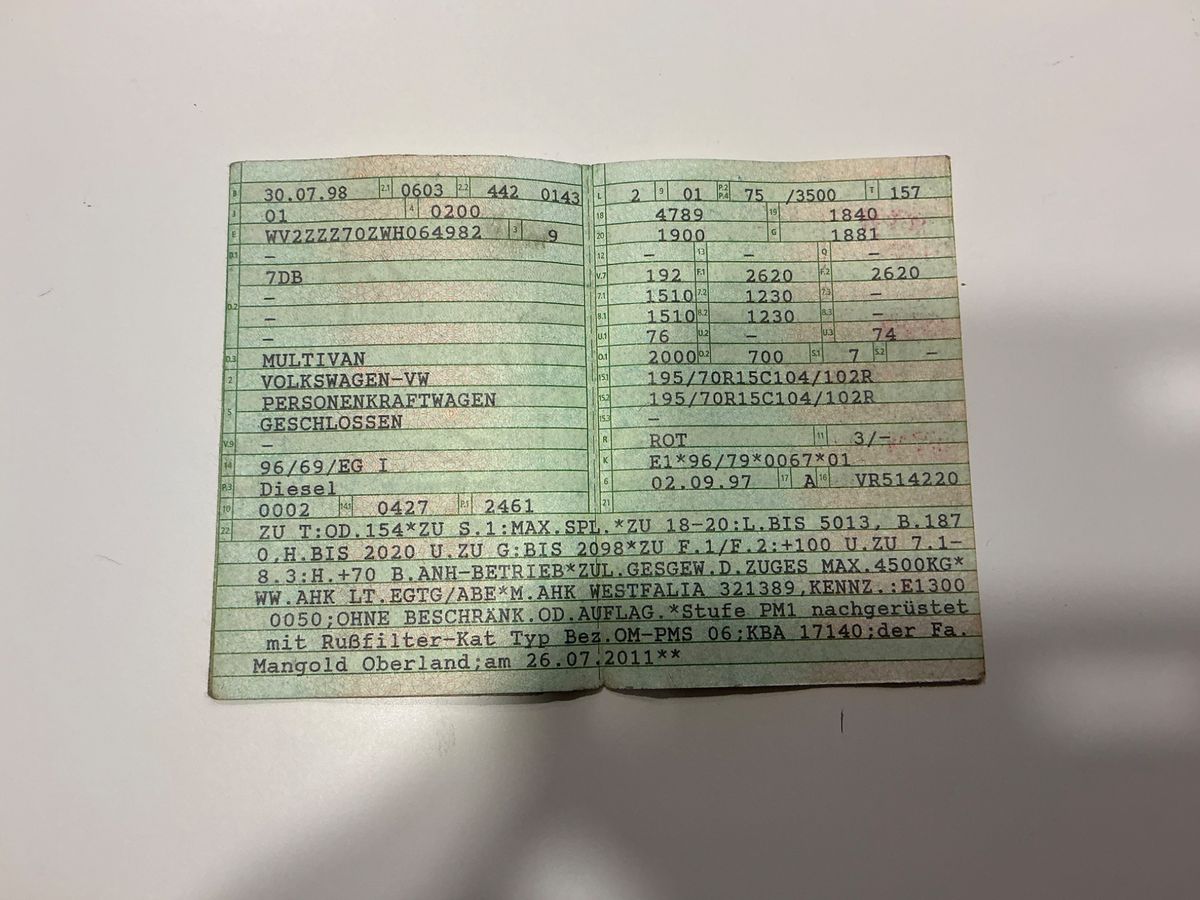 B 30.07.98 2.1 0603 2.2 442 0143
J 01 4 0200
E WV2ZZZ70ZWH064982 3 9
D.1 –
7DB
D.2 –
–
–
D.3 MULTIVAN
2 VOLKSWAGEN-VW
5 PERSONENKRAFTWAGEN
GESCHLOSSEN
V.9 –
14 96/69/EG I
P.3 Diesel
10 0002 14.1 0427 P.1 2461
L 2 9 01 P.2 P.4 75 /3500 T 157
18 4789 19 1840
20 1900 G 1881
12 – 13 – Q –
V.7 192 F.1 2620 F.2 2620
7.1 1510 7.2 1230 7.3 –
8.1 1510 8.2 1230 8.3 –
U.1 76 U.2 – U.3 74
O.1 2000 O.2 700 S.1 7 S.2 –
15.1 195/70R15C104/102R
15.2 195/70R15C104/102R
15.3 –
R ROT 11 3/–
K E1*96/79*0067*01
6 02.09.97 17 A 16 VR514220
21
22 ZU T:OD.154*ZU S.1:MAX.SPL.*ZU 18-20:L.BIS 5013, B.187
0,H.BIS 2020 U.ZU G:BIS 2098*ZU F.1/F.2:+100 U.ZU 7.1-
8.3:H.+70 B.ANH-BETRIEB*ZUL.GESGEW.D.ZUGES MAX.4500KG*
WW.AHK LT.EGTG/ABE*M.AHK WESTFALIA 321389,KENNZ.:E1300
0050;OHNE BESCHRÄNK.OD.AUFLAG.*Stufe PM1 nachgerüstet
mit Rußfilter-Kat Typ Bez.OM-PMS 06;KBA 17140;der Fa.
Mangold Oberland;am 26.07.2011**